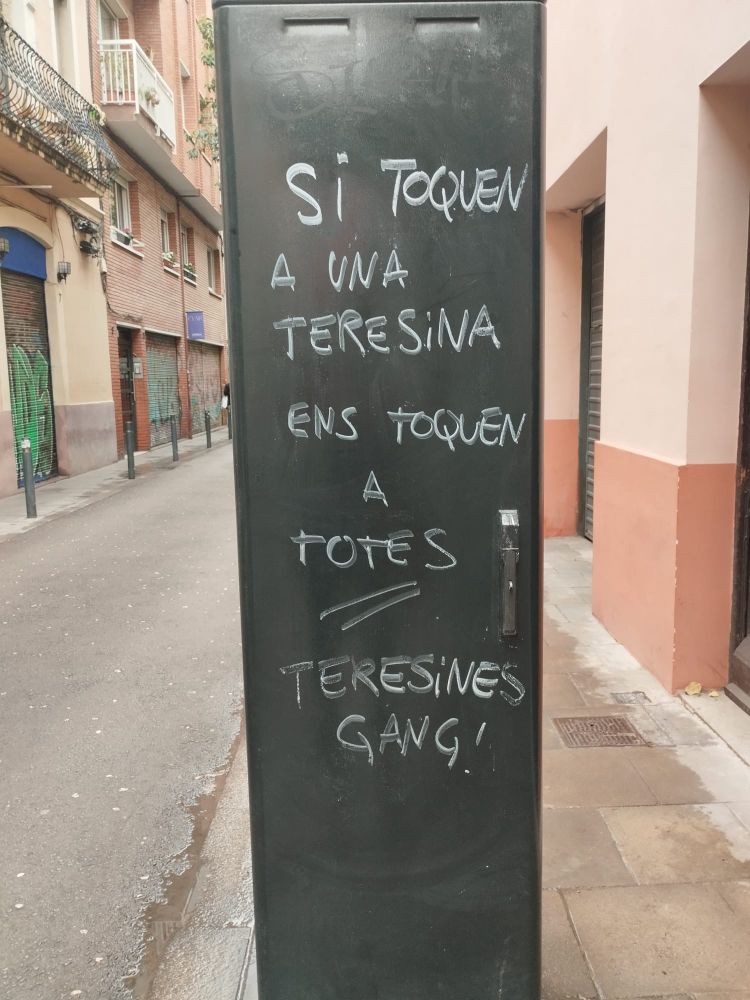 Si TOQUEN
A UNA
TERESiNA
ENS TOQUEN
A
TOTES
TERESiNES
GANG!